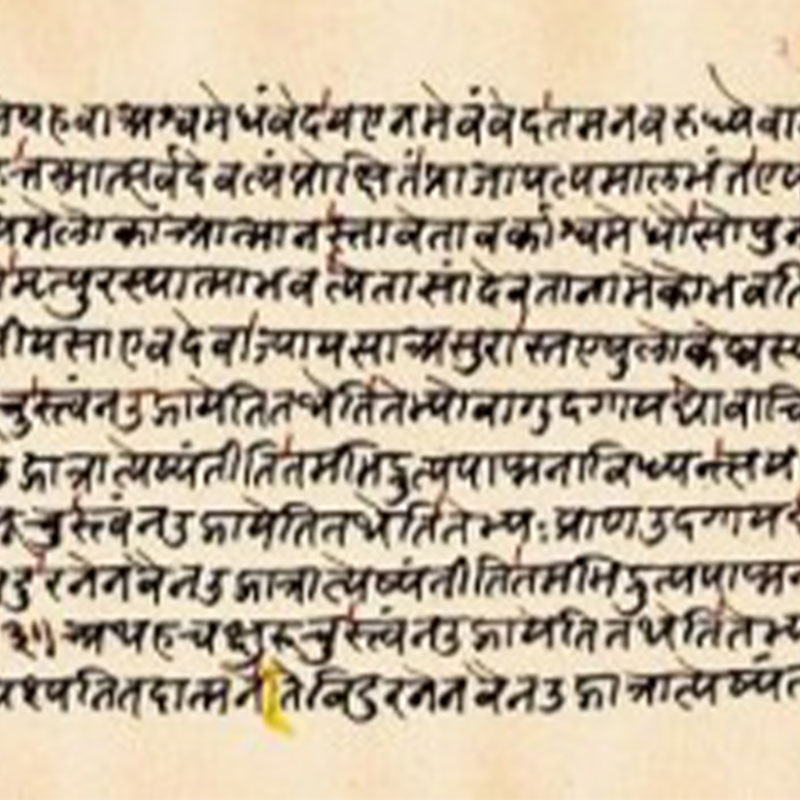 षहवाअश्वमेधंवेदयएनमेवंवेदतमनवरुध्येवा
त्तस्मात्सर्वदेवत्यंप्रोक्षितंप्राजापत्यमालभंतएष
मेलोकाआत्मानस्तावेतावर्काश्वमेधौसोपुन
मृत्युरस्यात्माभवत्येतासांदेवतानामेकोभवति
नीयसाएवदेवाज्यायसाअसुरास्तएषुलोकेष्वस्प
चुस्त्वंनउद्गायेतितथेतितेभ्योवागुदगायद्योवाचि
उद्गात्रात्येष्यंतीतितमभिद्रुत्यपाप्मनाविध्यन्सय
ऊचुस्त्वंनउद्गायेतितथेतितेभ्यःप्राणउदगायद्य
विदुरनेनवैनउद्गात्रात्येष्यंतीतितमभिद्रुत्यपाप्मन
३॥अथहचक्षुरूचुस्त्वंनउद्गायेतितथेतितेभ्य
पश्यतितदात्मनेतेविदुरनेनवैनउद्गात्रात्येष्यंत